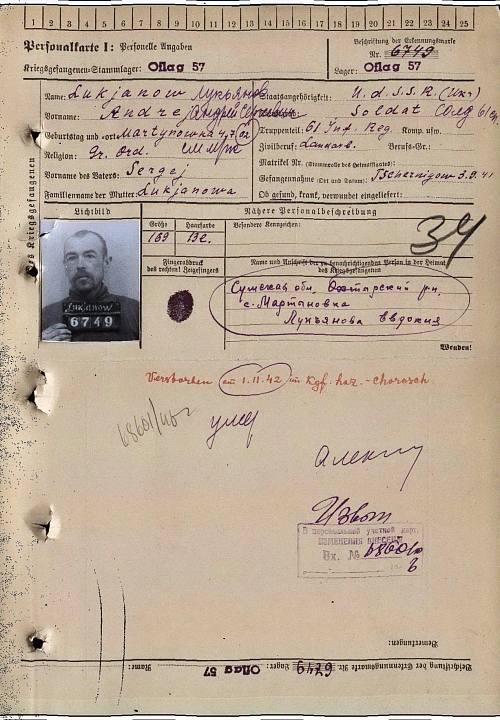 1 2 3 4 5 6 7 8 9 10 11 12 13 14 15 16 17 18 19 20 21 22 23 24 25
Personalkarte I: Personelle Angaben
Beschriftung der Erkennungsmarke
Nr. 6749
Kriegsgefangenen-Stammlager: Oflag 57
Lager: Oflag 57
Name: Lukjanow Лукьянов
Staatsangehörigkeit: U.d.S.S.R. (Ukr)
Vorname: Andrej Андрей
Soldat Солд
Geburtstag und -ort Martynowka 4,7,02
Truppenteil: 61 Inf. Reg. Komp. usw.
Religion: Gr. Ord.
Zivilberuf: Landarb. Berufs-Gr.:
Matrikel Nr. (Stammrolle des Heimatstaates):
Vorname des Vaters: Sergej
Gefangennahme (Ort und Datum): Tschernigow 3.9.41
Familienname der Mutter: Lukjanowa
Ob gesund, krank, verwundet eingeliefert:
des Kriegsgefangenen
Lichtbild
Nähere Personalbeschreibung
Größe Haarfarbe Besondere Kennzeichen:
169 Bl.
34
Fingerabdruck
des rechten! Zeigefingers
Name und Anschrift der zu benachrichtigenden Person in der Heimat
des Kriegsgefangenen
Сумская обл. Охтырский рн.
с. Мартановка
Лукьянова Евдокия
Lukjanow
6749
Wenden!
Verstorben am 1.11.42 im Kgf. Laz. - Chorosch
68601/462
умер
Извещ
В персональной учетной карт.
ИЗМЕНЕНИЯ ВНЕСЕНЫ
Вх. № 68601
Bemerkungen:
Beschriftung der Erkennungsmarke Nr. 6749 Lager: Oflag 57 Name: